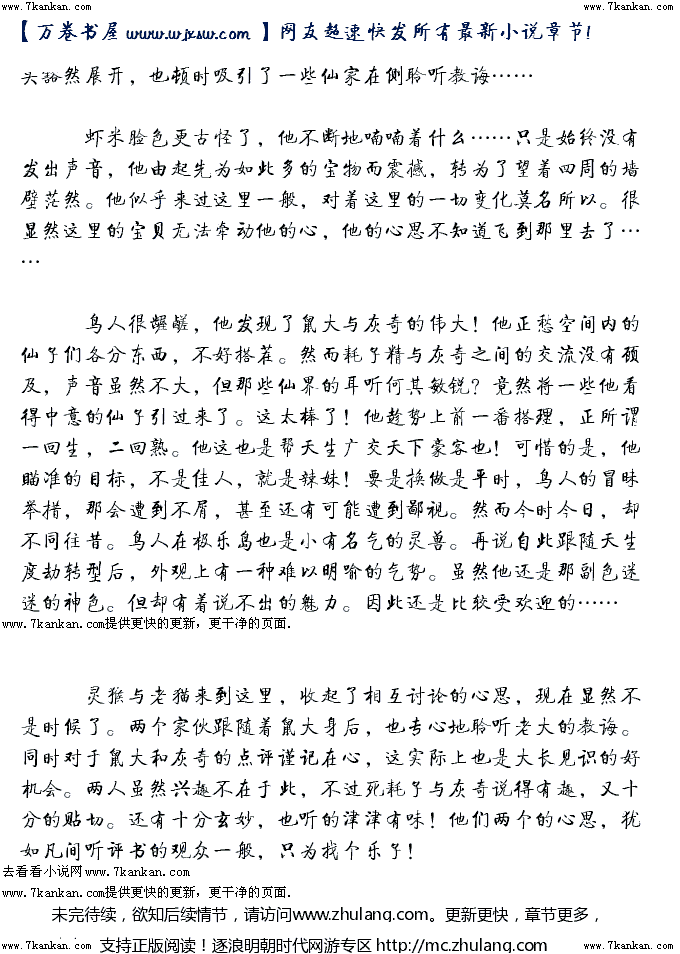 www.7kankan.com www.7kankan.com
【万卷书屋 www.wjxsw.com 】网友超速快发所有最新小说章节!
头豁然展开，也顿时吸引了一些仙家在侧聆听教诲……
虾米脸色更古怪了，他不断地喃喃着什么……只是始终没有
发出声音，他由起先为如此多的宝物而震撼，转为了望着四周的墙
壁茫然。他似乎来过这里一般，对着这里的一切变化莫名所以。很
显然这里的宝贝无法牵动他的心，他的心思不知道飞到那里去了…
…
鸟人很龌龊，他发现了鼠大与灰奇的伟大！他正愁空间内的
仙子们各分东西，不好搭茬。然而耗子精与灰奇之间的交流没有顾
及，声音虽然不大，但那些仙界的耳听何其敏锐？竟然将一些他看
得中意的仙子引过来了。这太棒了！他趁势上前一番搭理，正所谓
一回生，二回熟。他这也是帮天生广交天下豪客也！可惜的是，他
瞄准的目标，不是佳人，就是辣妹！要是换做是平时，鸟人的冒昧
举措，那会遭到不屑，甚至还有可能遭到鄙视。然而今时今日，却
不同往昔。鸟人在极乐岛也是小有名气的灵兽。再说自此跟随天生
度劫转型后，外观上有一种难以明喻的气势。虽然他还是那副色迷
迷的神色。但却有着说不出的魅力。因此还是比较受欢迎的……
www.7kankan.com提供更快的更新，更干净的页面.
灵猴与老猫来到这里，收起了相互讨论的心思，现在显然不
是时候了。两个家伙跟随着鼠大身后，也专心地聆听老大的教诲。
同时对于鼠大和灰奇的点评谨记在心，这实际上也是大长见识的好
机会。两人虽然兴趣不在于此，不过死耗子与灰奇说得有趣，又十
分的贴切。还有十分玄妙，也听的津津有味！他们两个的心思，犹
如凡间听评书的观众一般，只为找个乐子！
去看看小说网www.7kankan.com
www.7kankan.com提供更快的更新，更干净的页面.
未完待续，欲知后续情节，请访问www.zhulang.com。更新更快，章节更多，
www.7kankan.com 支持正版阅读！逐浪明朝时代网游专区 http://mc.zhulang.com www.7kankan.com